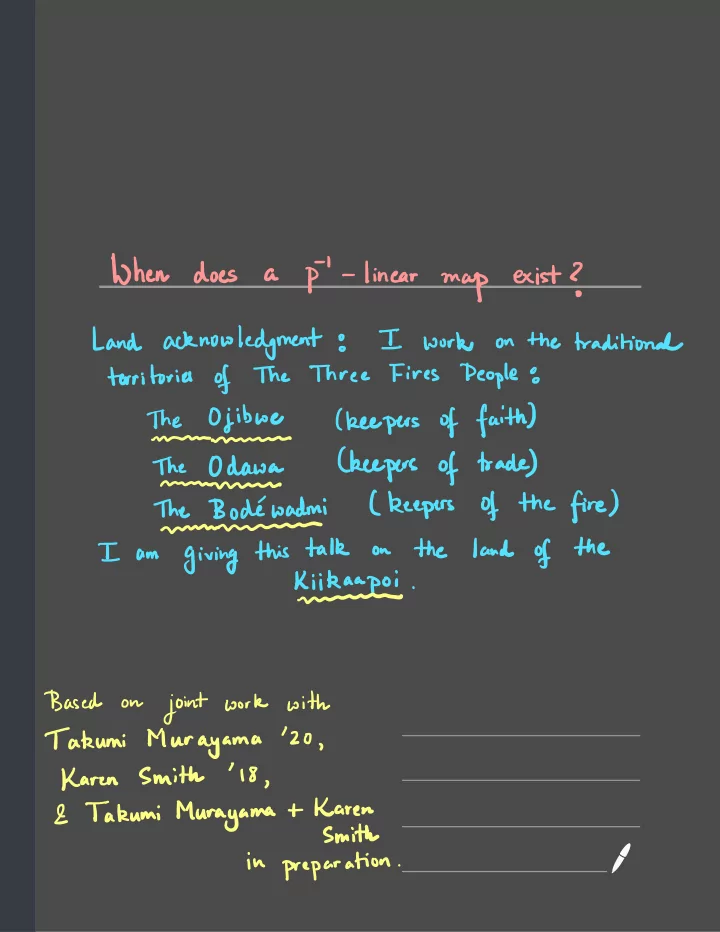 When does a p⁻¹-linear map exist?
Land acknowledgment: I work on the traditional
territories of The Three Fires People:
The Ojibwe (keepers of faith)
The Odawa (keepers of trade)
The Bodéwadmi (keepers of the fire)
I am giving this talk on the land of the
Kiikaapoi.
Based on joint work with
Takumi Murayama '20,
Karen Smith '18,
& Takumi Murayama + Karen
Smith
in preparation.